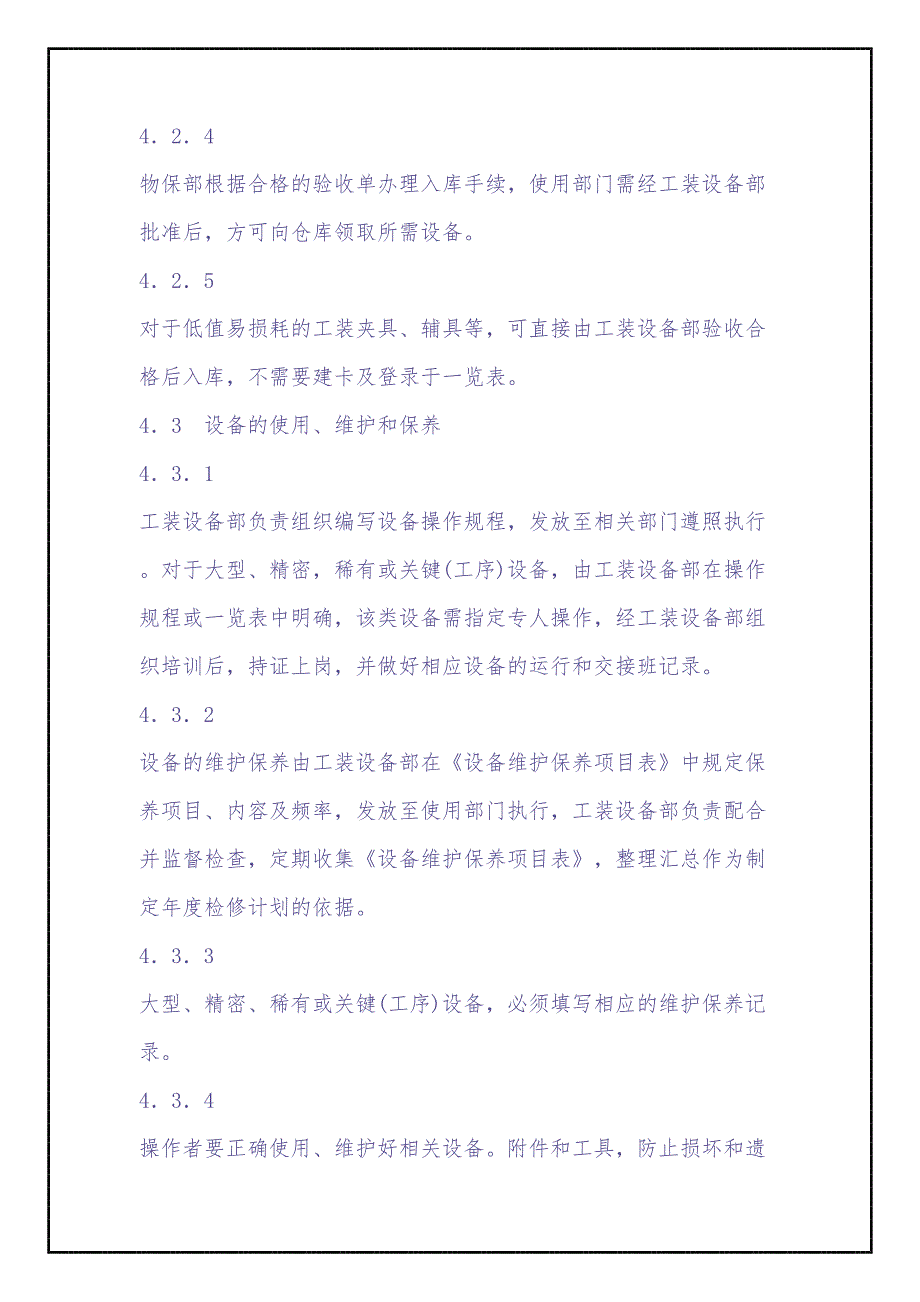 4．2．4
物保部根据合格的验收单办理入库手续，使用部门需经工装设备部
批准后，方可向仓库领取所需设备。
4．2．5
对于低值易损耗的工装夹具、辅具等，可直接由工装设备部验收合
格后入库，不需要建卡及登录于一览表。
4．3　设备的使用、维护和保养
4．3．1
工装设备部负责组织编写设备操作规程，发放至相关部门遵照执行
。对于大型、精密，稀有或关键(工序)设备，由工装设备部在操作
规程或一览表中明确，该类设备需指定专人操作，经工装设备部组
织培训后，持证上岗，并做好相应设备的运行和交接班记录。
4．3．2
设备的维护保养由工装设备部在《设备维护保养项目表》中规定保
养项目、内容及频率，发放至使用部门执行，工装设备部负责配合
并监督检查，定期收集《设备维护保养项目表》，整理汇总作为制
定年度检修计划的依据。
4．3．3
大型、精密、稀有或关键(工序)设备，必须填写相应的维护保养记
录。
4．3．4
操作者要正确使用、维护好相关设备。附件和工具，防止损坏和遗